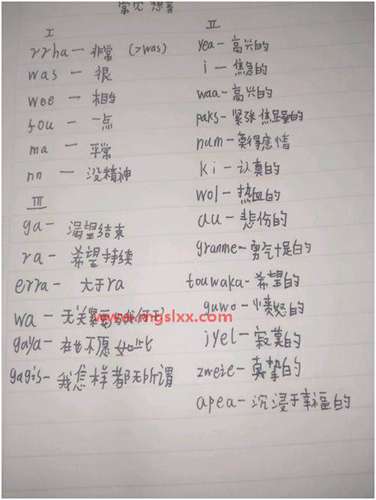 常见
I
rrha — 非常 (>was)
was — 很
wee — 相当
fou — 一点
ma — 平常
nn — 没精神
III
ga — 渴望结束
ra — 希望持续
erra — 大于ra
wa — 无关
gaya —
gagis — 我怎样都无所谓
II
yea — 高兴的
i — 焦急的
waa — 高兴的
paks — 紧张
num — 莫得感情
ki — 认真的
wol — 热血的
au — 悲伤的
granme — 勇气十足的
touwaka — 希望的
guwo — 愤怒的
iyel — 寂寞的
zweie — 真挚的
apea — 沉浸于幸福的